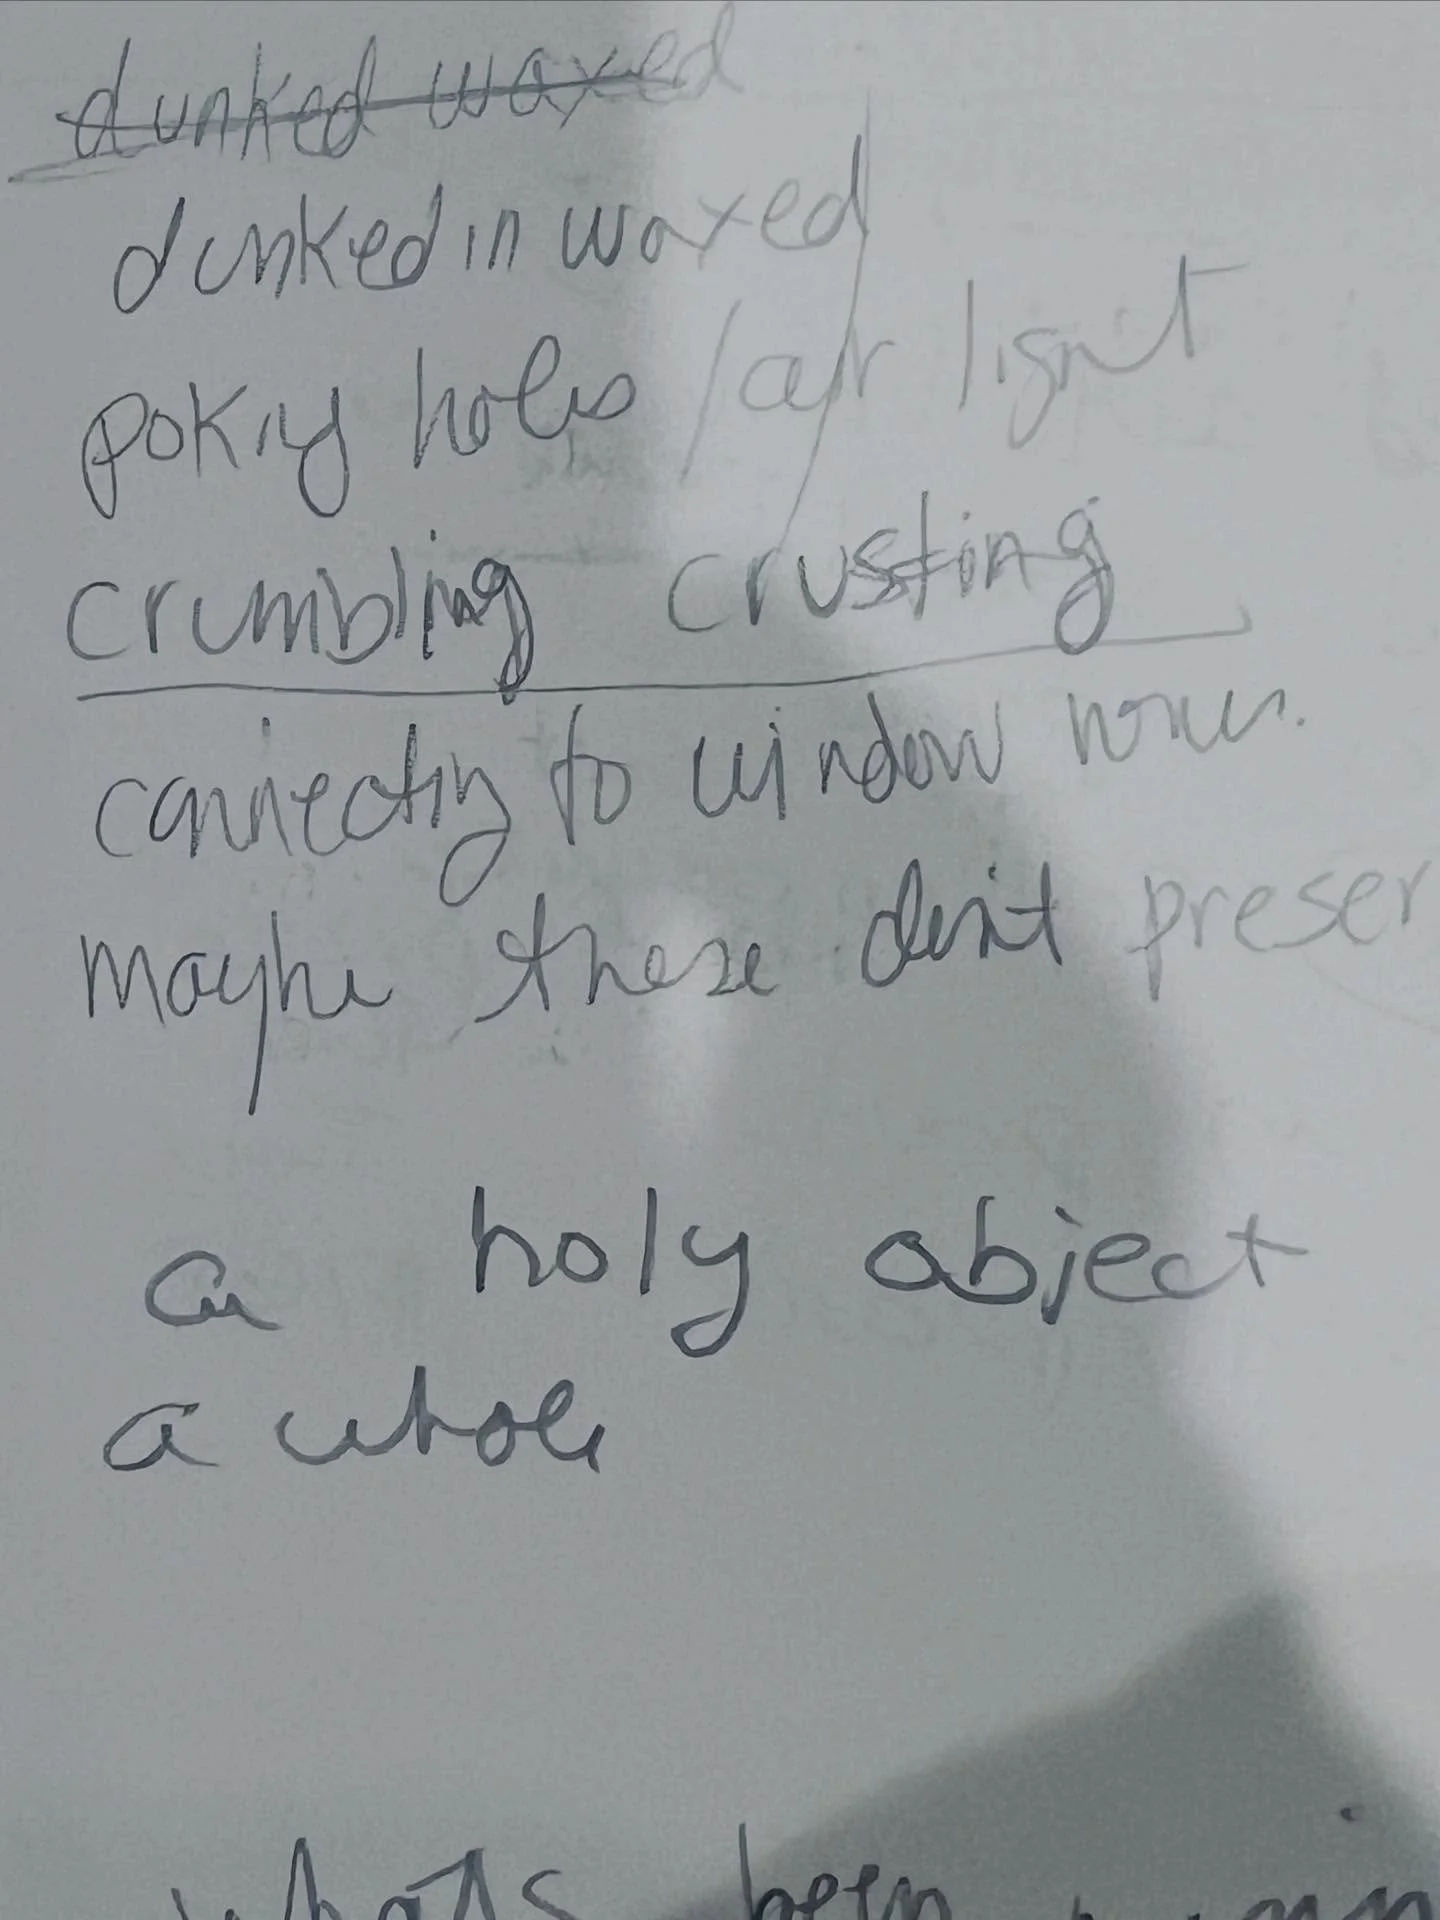 dunked waxed
dunked in waxed
poking holes / air light
crumbling crusting
connecting to window
maybe these don't preser
a holy object
a whole
what's been